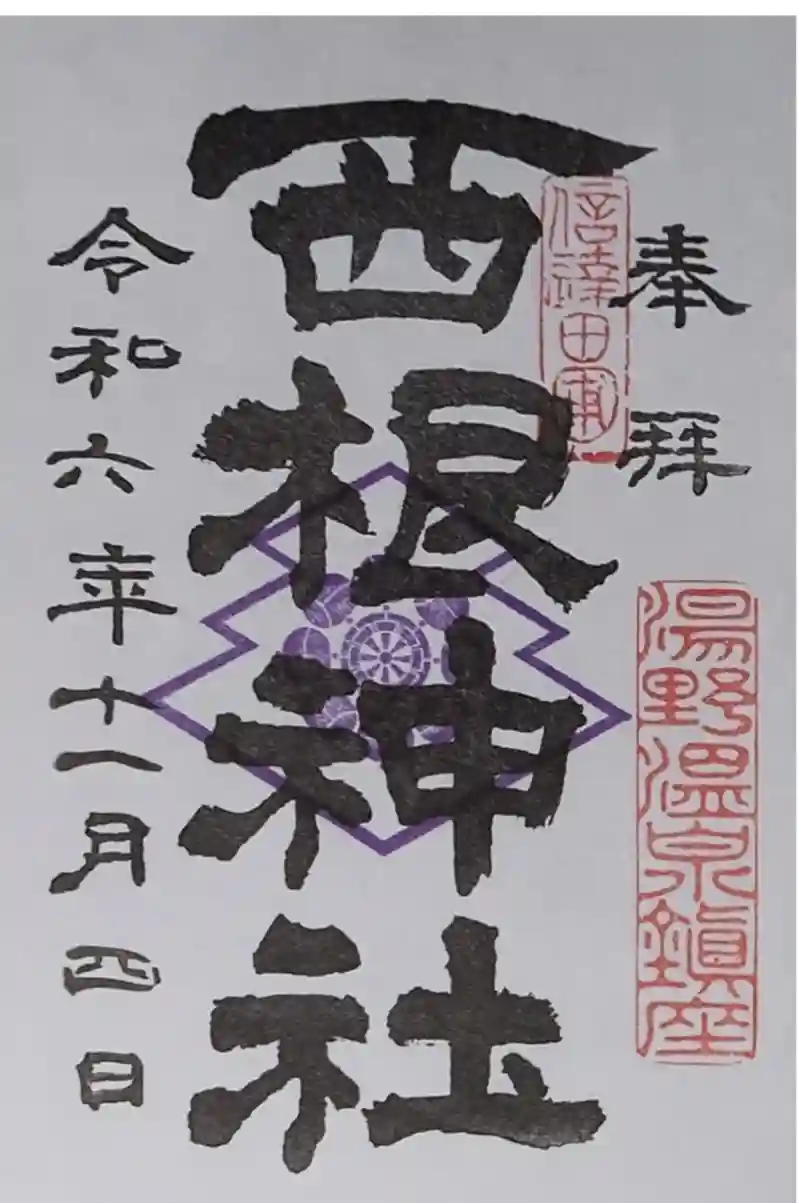 奉拝
湯野温泉鎮座
信達田甫一
西根神社
令和六年十一月四日